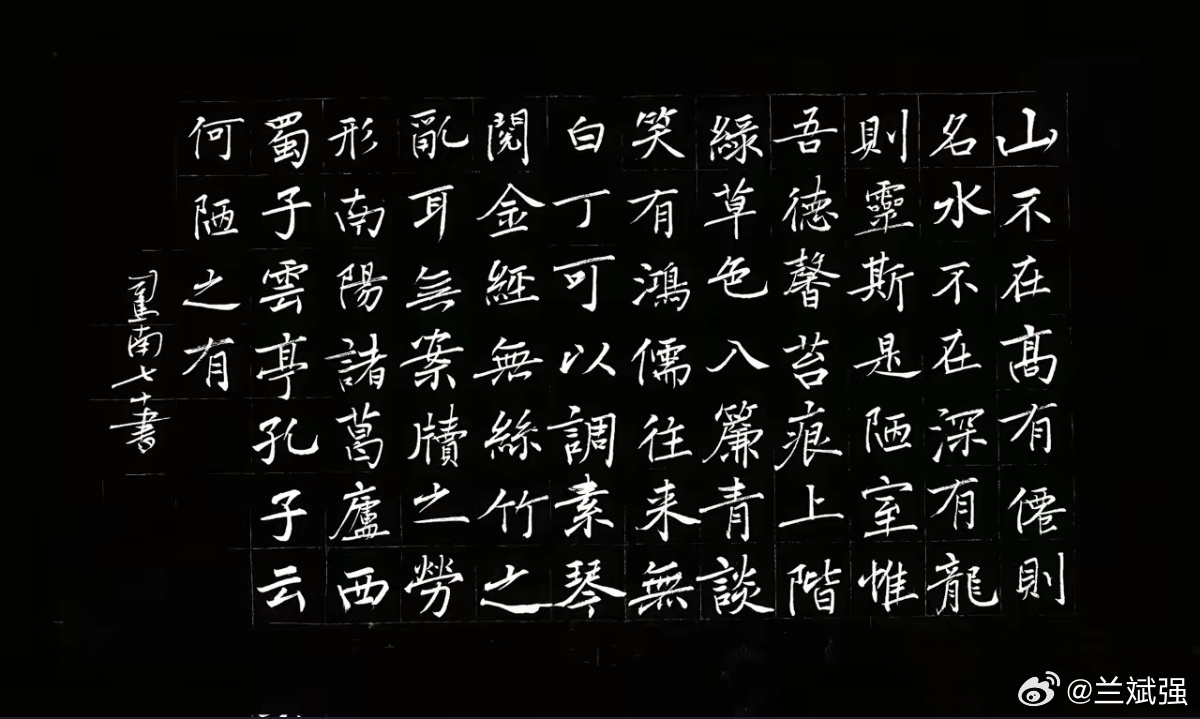 山不在髙有僊則
名水不在深有龍
則靈斯是陋室惟
吾德馨苔痕上階
緑草色入簾青談
笑有鴻儒往来無
白丁可以調素琴
閱金經無絲竹之
亂耳無案牘之勞
形南陽諸葛廬西
蜀子雲亭孔子云
何陋之有
南七十書
@兰斌强